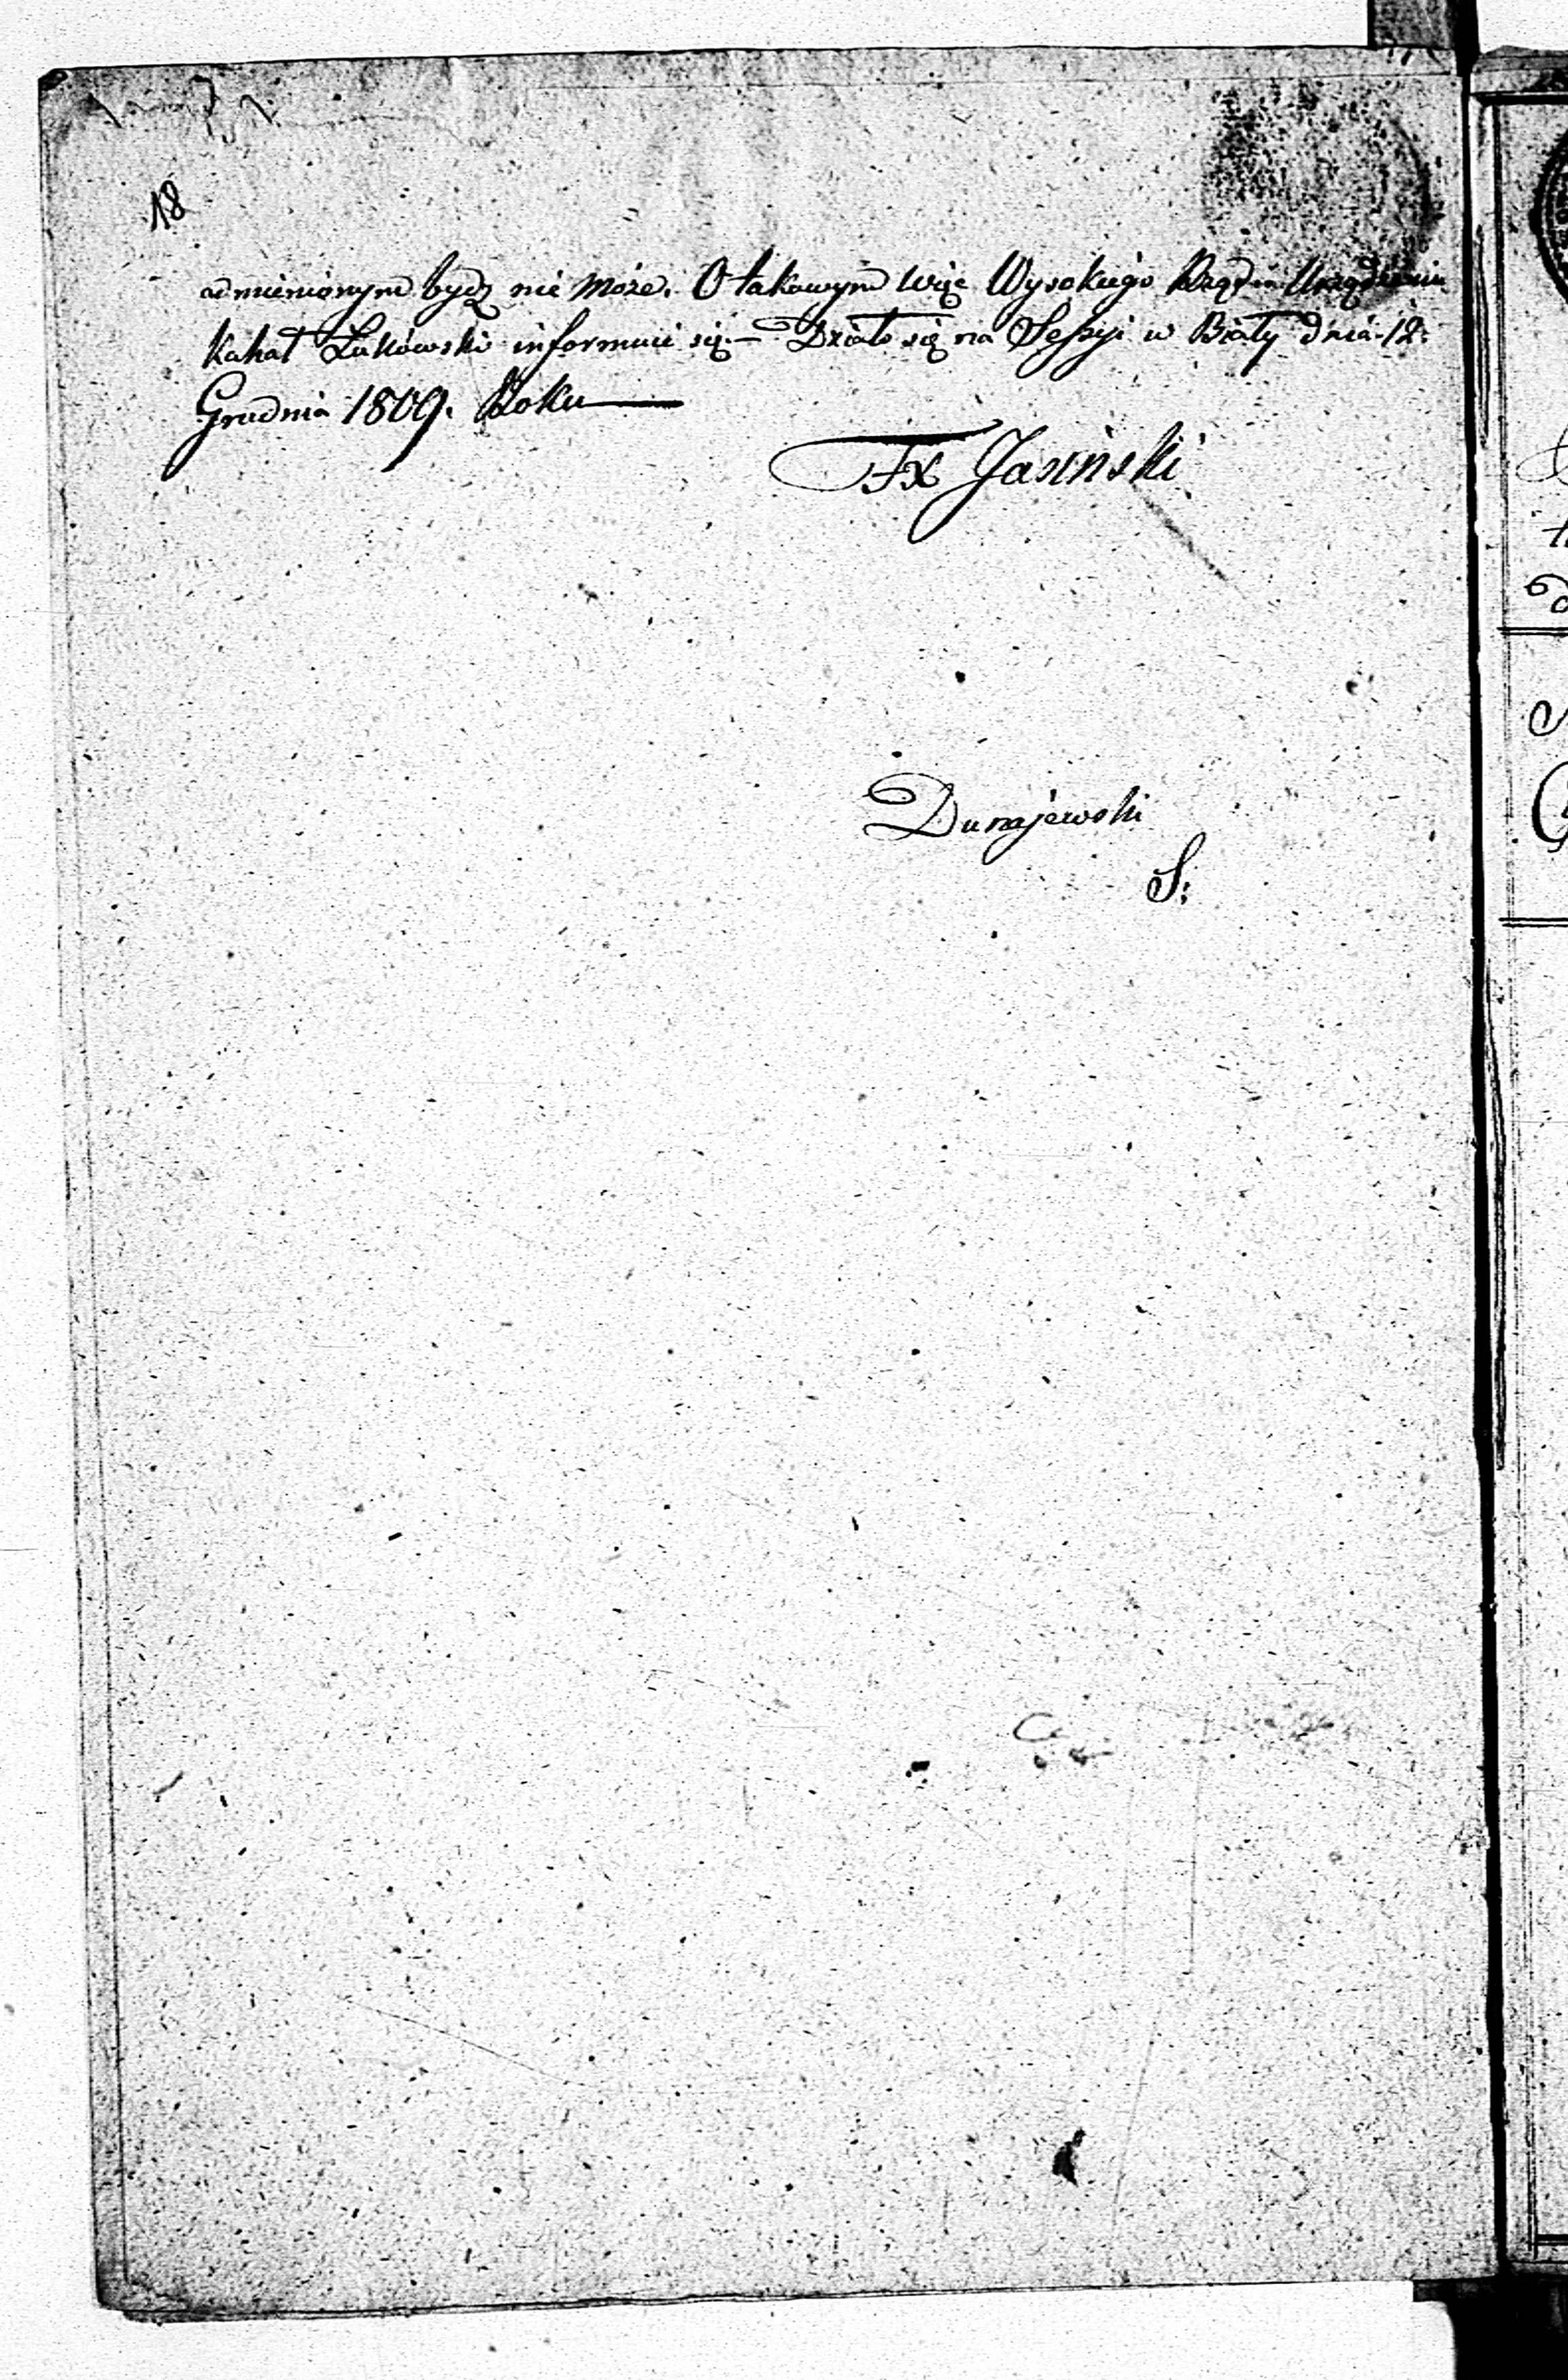 18
odmienionym bydź nie może. O takowym więc Wysokiego Rządu Urządzeniu
Kahał Łukowski informuie się. — Działo się na Sessyi w Biały dnia 12.
Grudnia 1809. Roku —
FX Jasiński
Dunajewski
S: